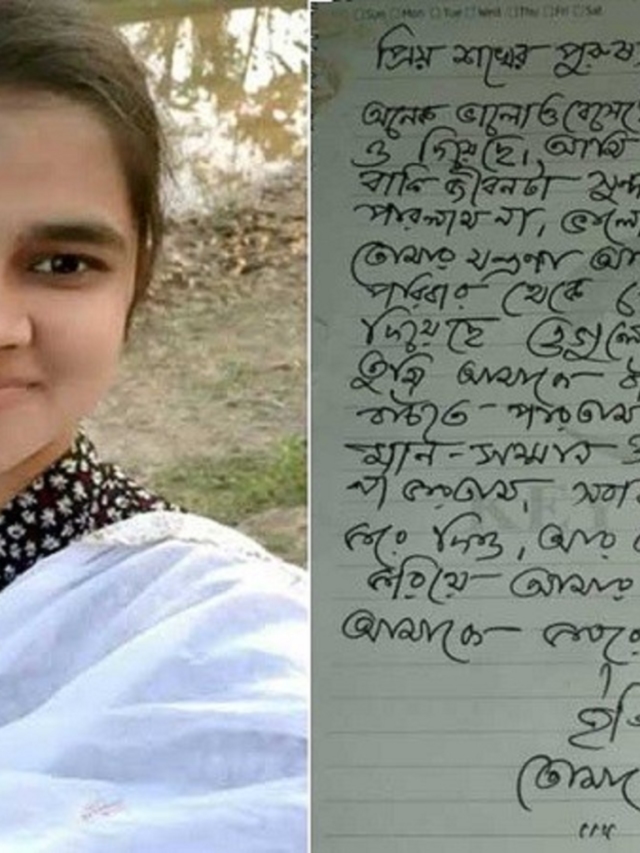 Sun Mon Tue Wed Thu Fri Sat
প্রিয় শখের পুরুষ
অনেক ভালোও বেসেছে
ও দিয়েছে, আমি
বাকি জীবনটা সুন্দ
পারলাম না, ভালো
তোমার যন্ত্রণা আ
পরিবার থেকে
দিয়েছে ওগুলো
তুমি আমাকে
বাঁচতে পারতাম
মান-সম্মান
না করতাম, সবা
করে দিও, আর
করিয়ে আমার
আমাকে কবরে
ইতি
তোমার